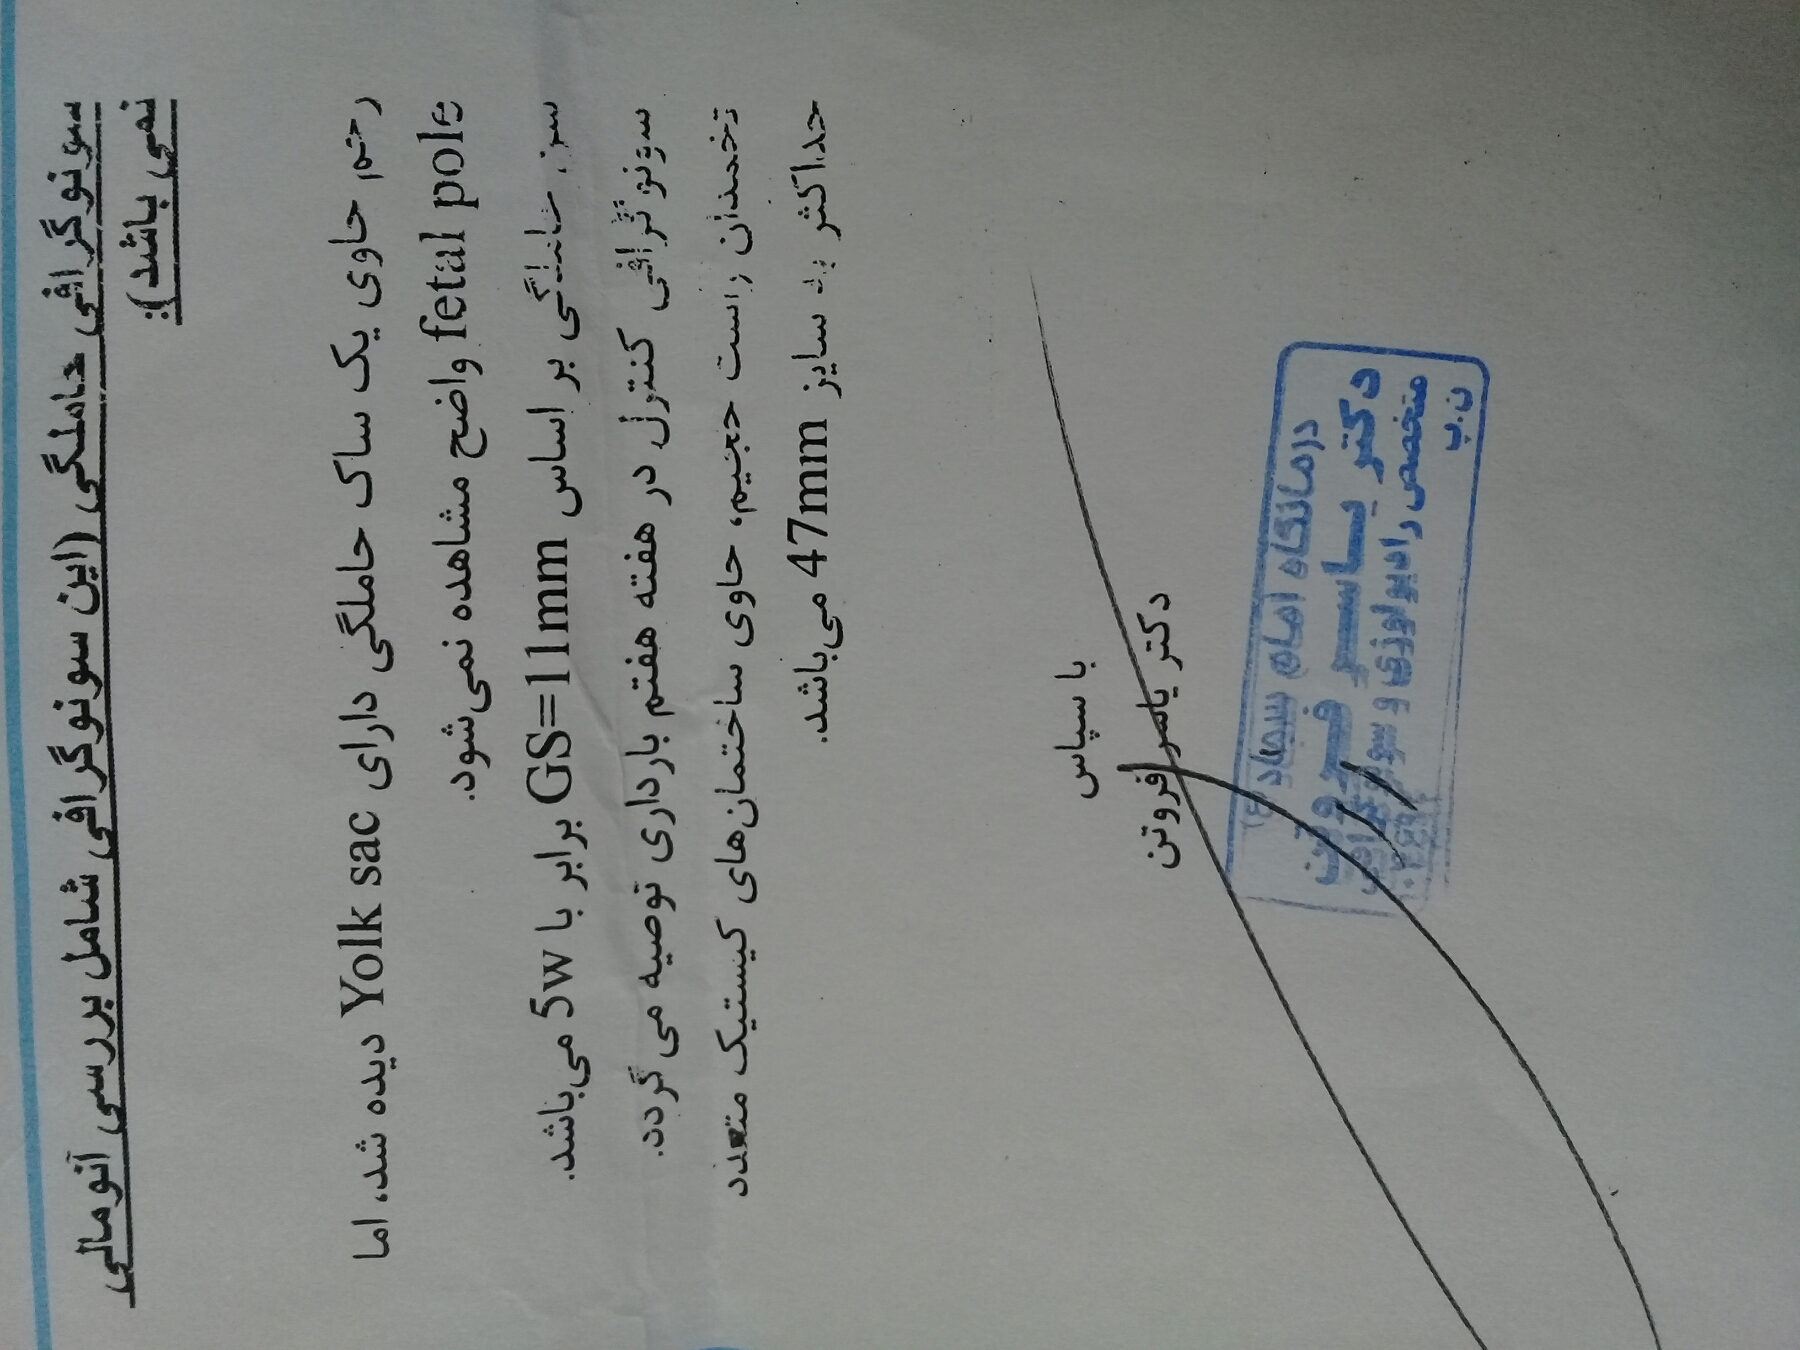 سونوگرافی حاملگی (این سونوگرافی شامل بررسی آنومالی
نمی باشد):
رحم حاوی یک ساک حاملگی دارای Yolk sac دیده شد، اما
fetal pole واضح مشاهده نمی‌شود.
سن حاملگی بر اساس GS=11mm برابر با 5w می‌باشد.
سونوگرافی کنترل در هفته هفتم بارداری توصیه می گردد.
تخمدان راست حجیم، حاوی ساختمان‌های کیستیک متعدد
حداکثر به سایز 47mm می‌باشد.
با سپاس
دکتر یاسر فروتن
درمانگاه امام سجاد (ع)
دکتر یاسر فروتن
متخصص رادیولوژی و سونوگرافی
ن.پ